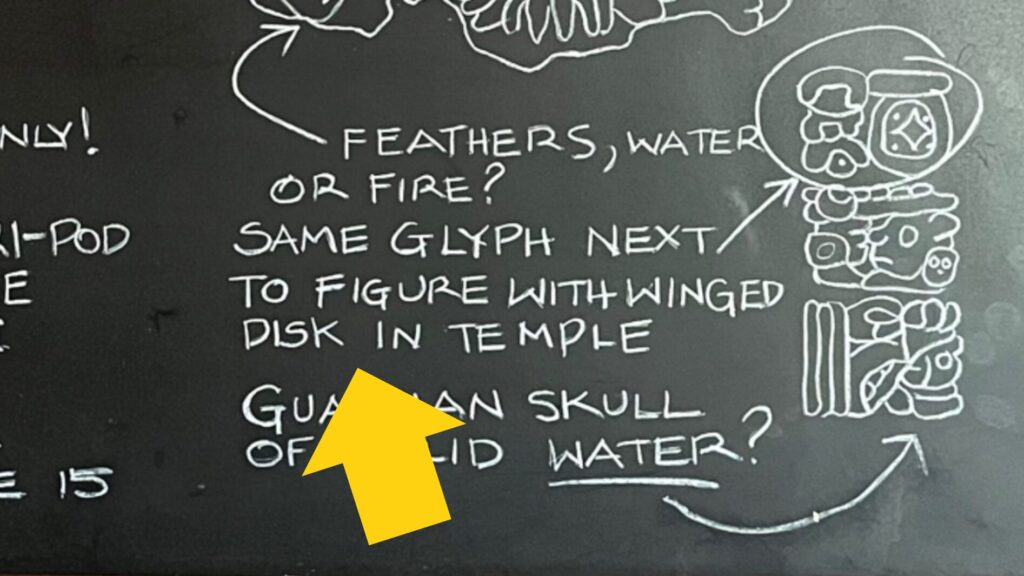 NLY!
I-POD
E
E 15
FEATHERS, WATER
OR FIRE?
SAME GLYPH NEXT
TO FIGURE WITH WINGED
DISK IN TEMPLE
SKULL
OF WATER?